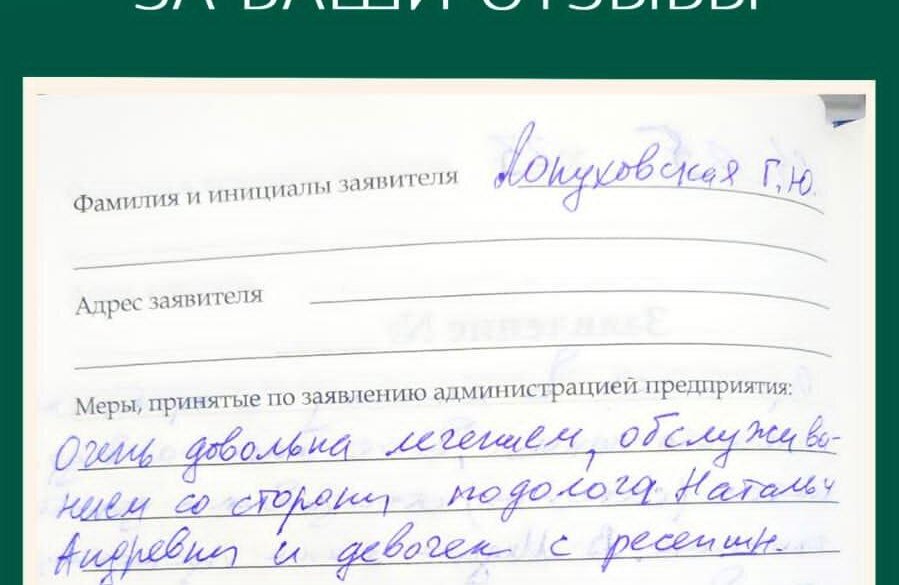 ЗА ВАШИ ОТЗЫВЫ
Фамилия и инициалы заявителя Лопуховская Г.Ю.
Адрес заявителя
Заявление №
Меры, принятые по заявлению администрацией предприятия:
Очень довольна лечением, обслужива-
нием со стороны подолога Натальи
Андревны и девочек с ресепшн.